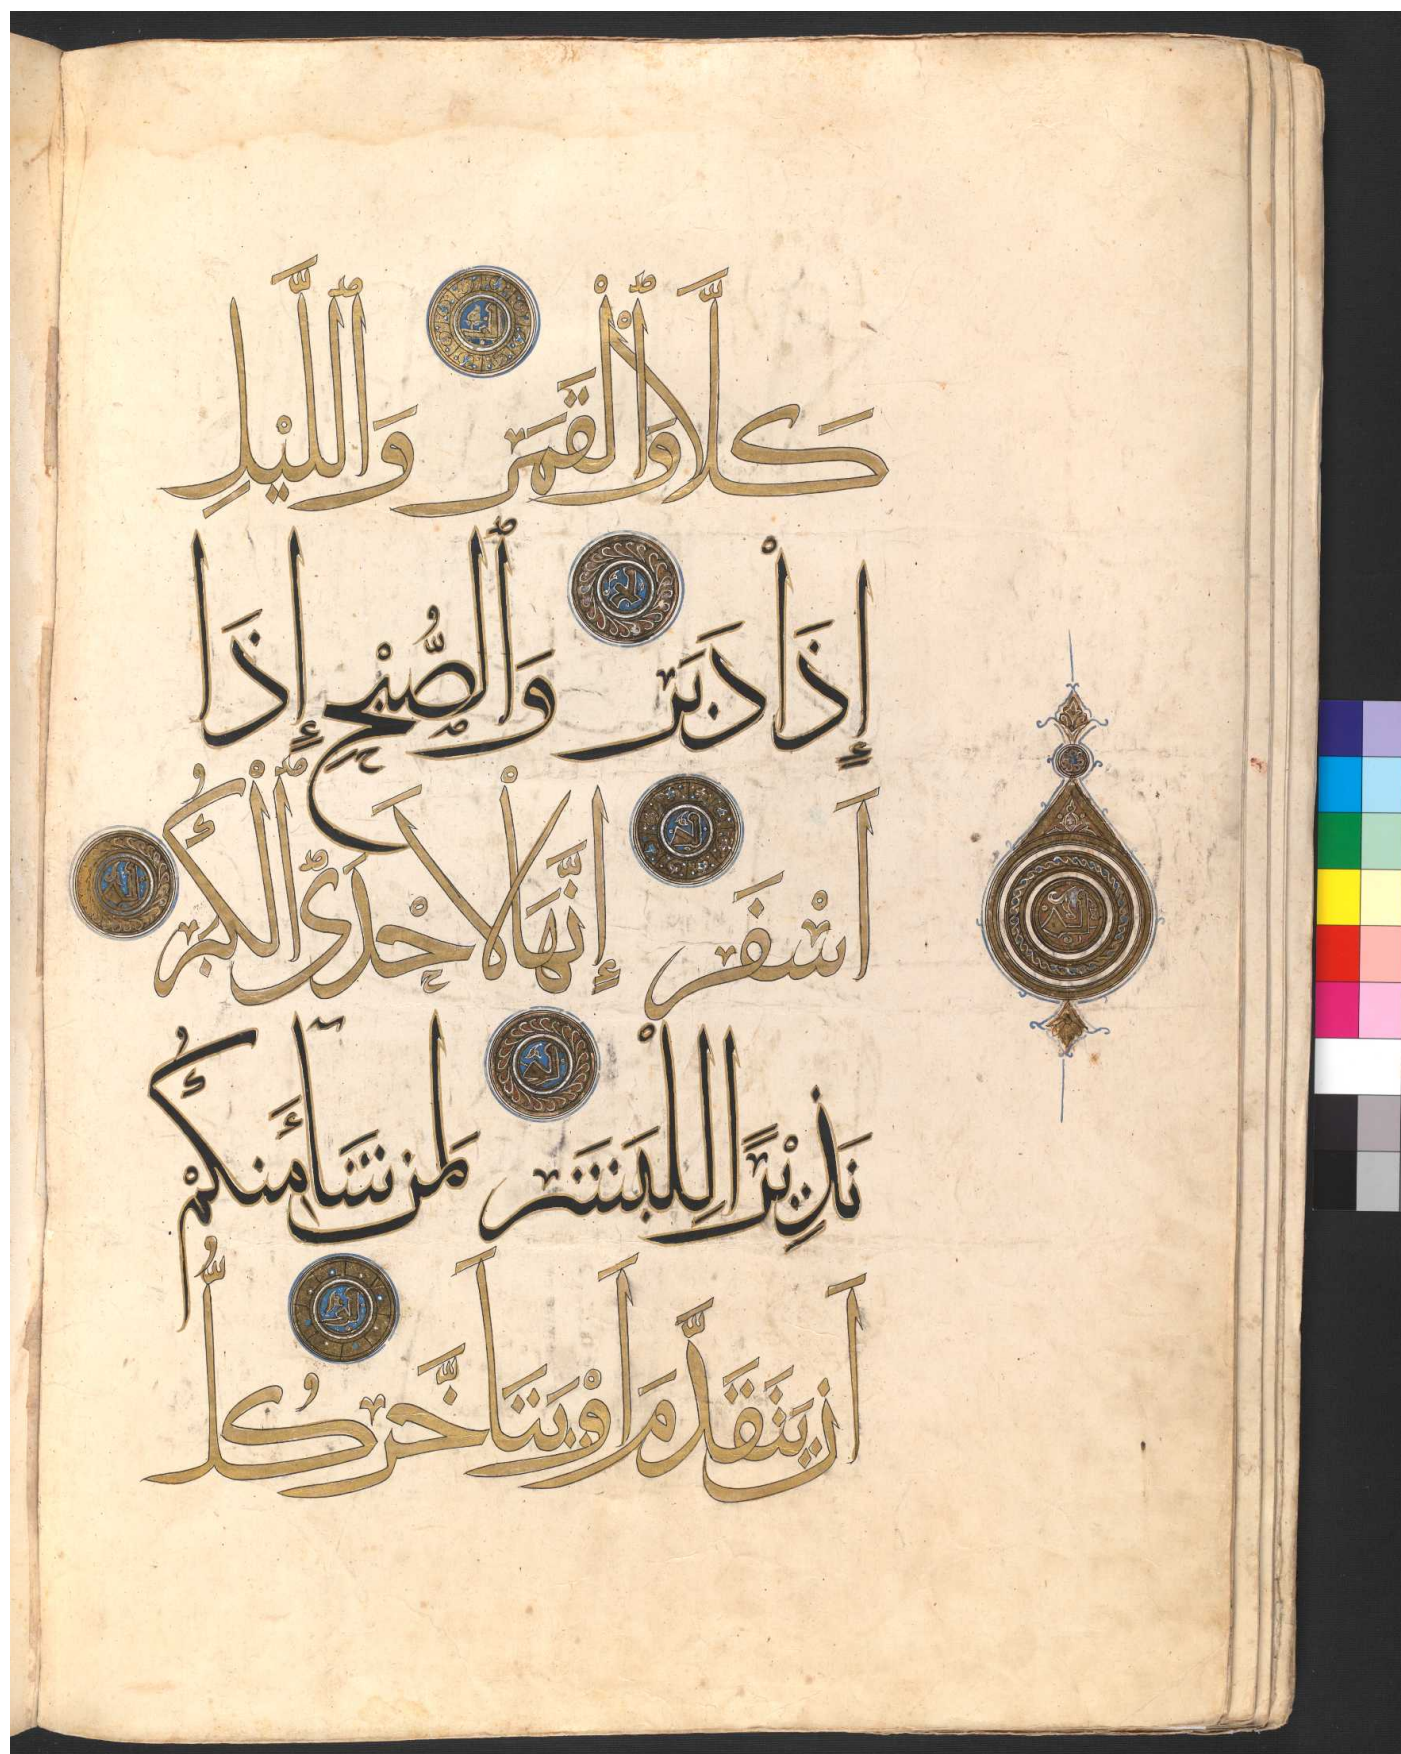 كَلَّا وَٱلْقَمَرِ وَٱللَّيْلِ
إِذَا دَبَرَ وَٱلصُّبْحِ إِذَا
أَسْفَرَ إِنَّهَا لَإِحْدَى ٱلْكُبَرِ
نَذِيْرًا لِلْبَشَرِ لِمَن شَآءَ مِنكُمْ
أَن يَتَقَدَّمَ أَوْ يَتَأَخَّرَ كُلُّ